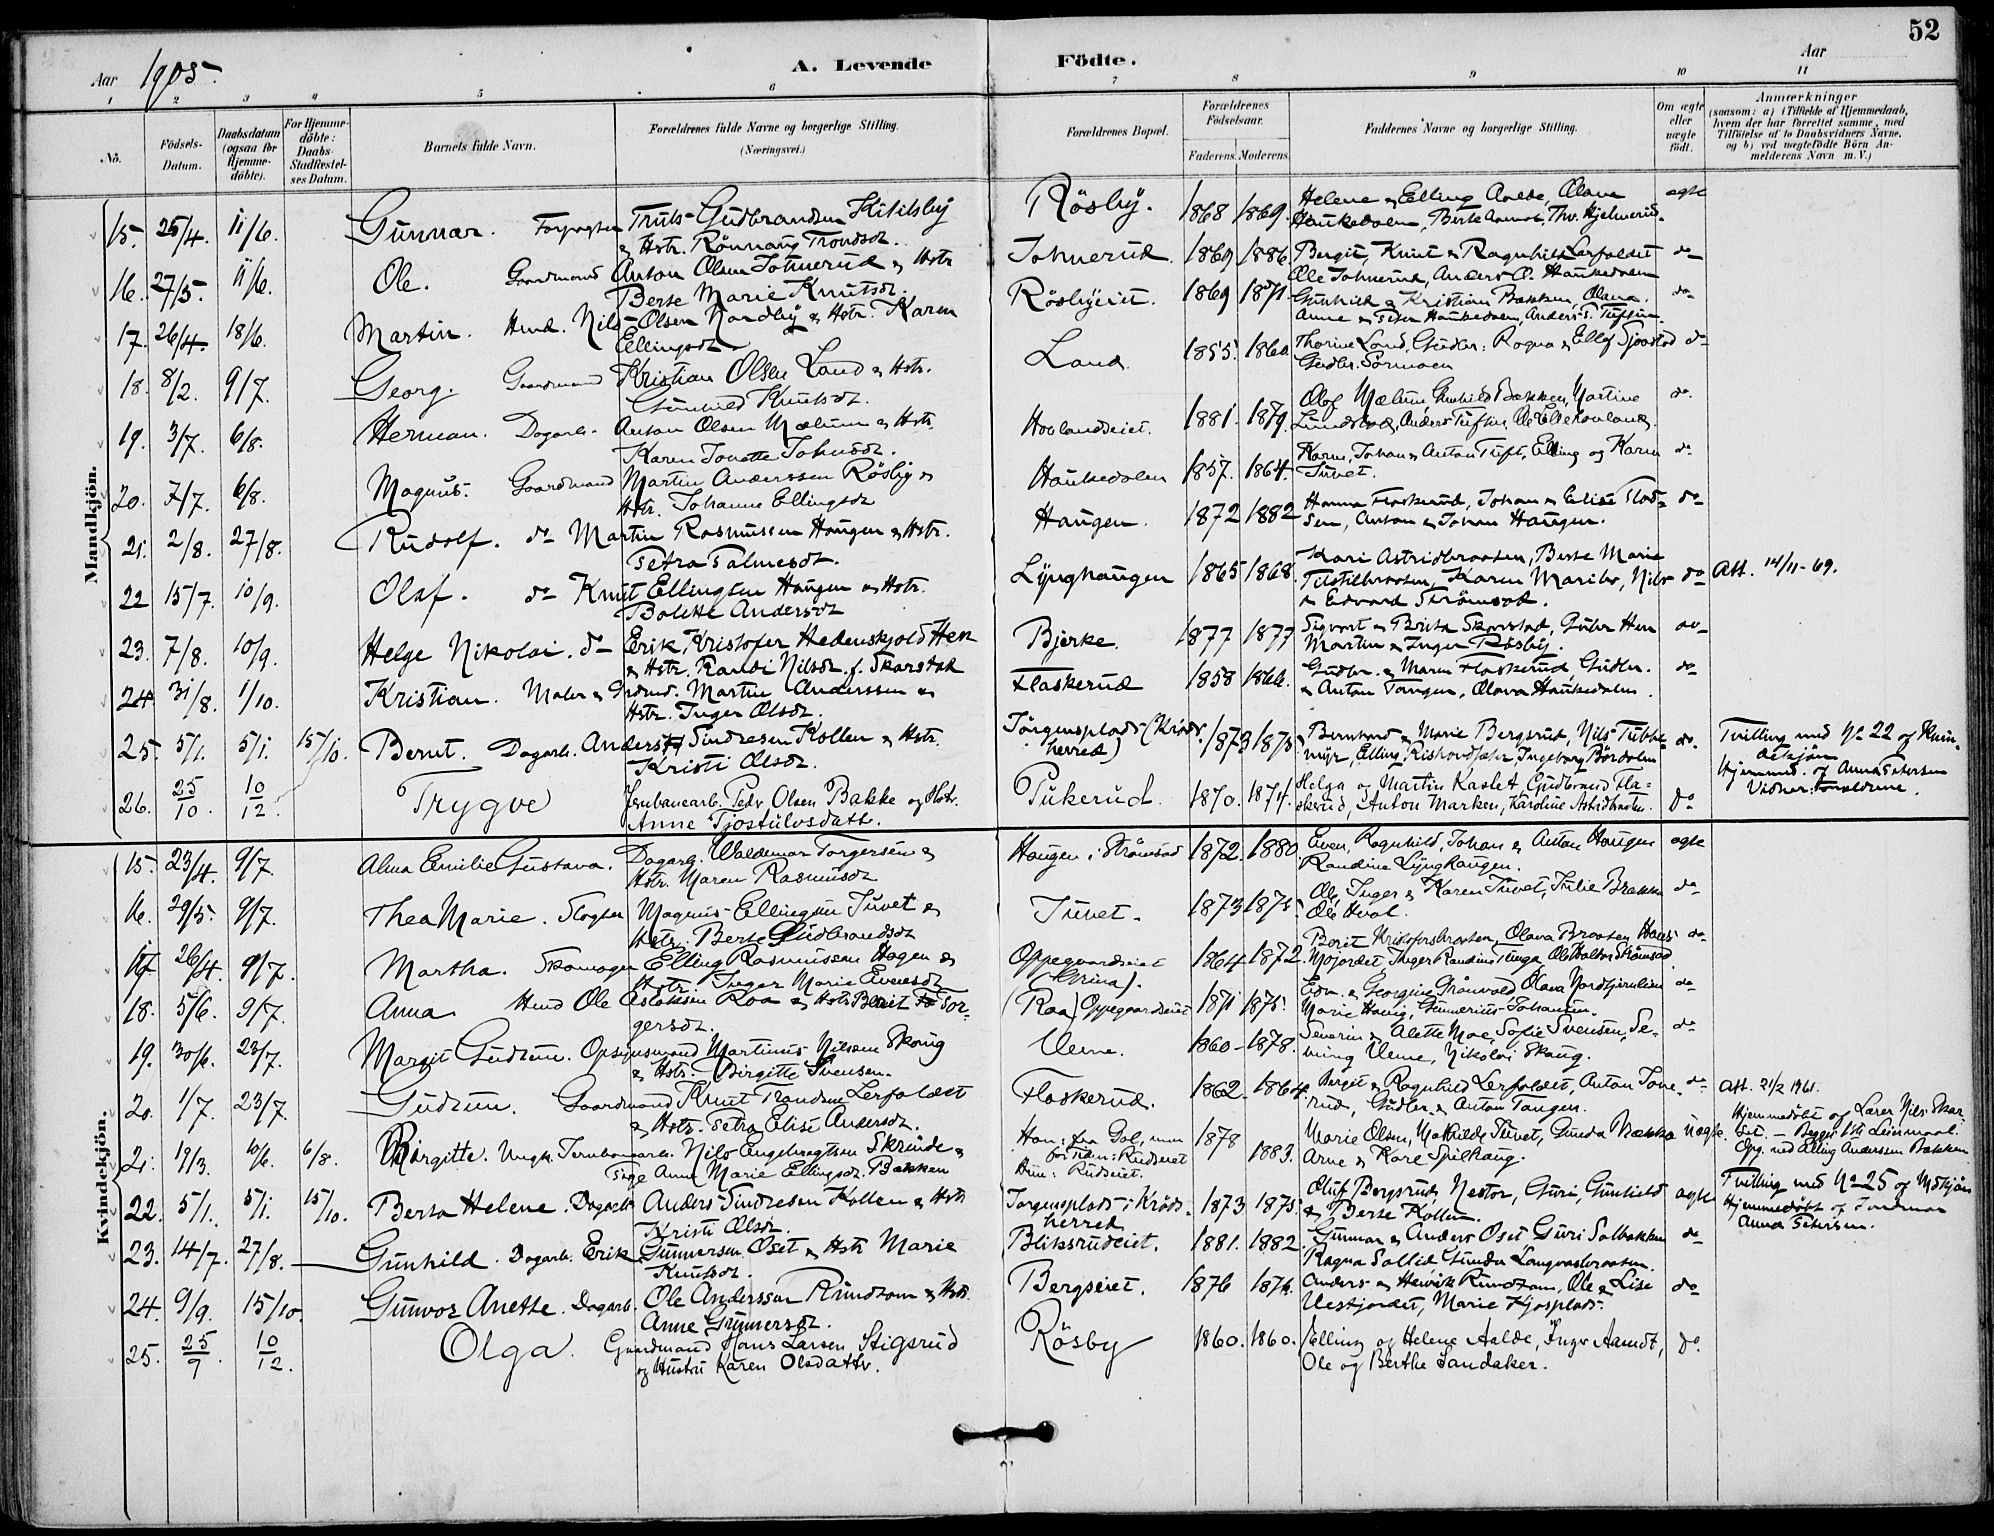 52
Aar 1905.
A. Levende Födte.
Aar
1 2 3 4 5 6 7 8 9 10 11
No.
Födsels-Datum.
Daabsdatum (ogsaa for Hjemme-döbte).
For Hjemme-döbte: Daabs-Stadfæstel-ses Datum.
Barnets fulde Navn.
Forældrenes fulde Navne og borgerlige Stilling.
(Næringsvei.)
Forældrenes Bopæl.
Forældrenes Födselsaar.
Faderens. Moderens.
Faddernes Navne og borgerlige Stilling.
Om ægte eller uægte födt.
Anmærkninger
(saasom: a) i Tilfælde af Hjemmedaab,
hvem der har forrettet samme, med
Tilföielse af to Daabsvidners Navne,
og b) ved uægtefödte Börn An-
melderens Navn m. V.)
Mandkjön.
15. 25/4. 11/6. Gunnar. Forpagter Truls Gudbrandsen Kitilsby
& Hstr. Rönnaug Trondsdt.
Rösby. 1868 1869. Helene & Elling Aalde, Olava
Haukedalen, Berte Aamot, Thv. Hjelmerud. ægte
16. 27/5. 11/6. Ole. Gaardmand Anton Olsen Tohnerud & Hstr
Berte Marie Knutsdt.
Tohnerud. 1869 1886. Bergit, Knut & Ragnhild Lerfaldet
Ole Tohnerud, Anders O. Haukedalen do
17. 26/4. 18/6. Martin. Hmd. Nils Olsen Nordby & Hstr. Karen
Ellingsdt
Rösbyeiet. 1869 1871. Gunhild & Kristian Bakken, Olava.
Anne & Peter Haukedalen, Anders S. Tuften. do
18. 8/2. 9/7. Georg. Gaardmand Kristian Olsen Land & Hstr.
Gunhild Knutsdt.
Land. 1855. 1860. Thorine Land, Gudbr: Ragna & Ellef Sjaastad
Gudbr. Sörmoen do
19. 3/7. 6/8. Herman. Dagarb. Anton Olsen Mælum & Hstr.
Karen Jonette Johnsdt.
Hovlandseiet. 1881. 1879. Olaf Mælum Gunhild Bakken, Martine
Lundstad, Anders Tuften, Ole Hovland. do.
20. 7/7. 6/8. Magnus. Gaardmand Martin Anderssen Rösby &
Hstr. Johanne Ellingsdt
Haukedalen 1857. 1864. Karen, Johan & Anton Tuft, Elling og Karen
Juvet. do
21. 2/8. 27/8. Rudolf. do Martin Rasmussen Haugen & Hstr.
Petra Palmesdt.
Haugen. 1872 1882 Hanna Flaskerud, Johan & Elise
Anton & Johan Haugen. do
22 15/7. 10/9. Olaf. do Knut Ellingsen Haugen & Hstr.
Bolette Andersdt
Lynghaugen 1865 1868. Kari Astridbraaten, Berte Marie
Karen Maribo, Nils
& Edvard Strömsod. do Att. 14/11-69.
23. 7/8. 10/9. Helge Nikolai. do Erik Kristofer Hedenskjold Hen
& Hstr. Randi Nilsdt. f. Skarstad
Bjerke. 1877 1877 Sigvart & Berta Skarstad, Gubr Hen
Martin & Inger Rösby. do
24 31/8. 1/10. Kristian. Maler & Grdmd. Martin Anderssen &
Hstr. Inger Olsdt.
Flaskerud 1858 1866. Gudbr. & Maren Flaskerud, Gudbr.
& Anton Tangen, Olava Haukedalen. do
25. 5/1. 5/1. 15/10. Bernt. Dagarb. Anders Sindresen Kollen & Hstr.
Kristi Olsdt.
Törgensplads (Kröds-
herred) 1873 1875. Bernhard & Marie Bergsrud, Nils Tubbe-
myr, Elling Ingeborg Bördalen do. Tvilling med No 22 af Kvin-
dekjön
Hjemmed. af Anna Petersen
Vidner: Forældrene.
26. 25/10. 10/12. Trygve Jernbanearb. Pedr Olsen Bakke og Hstr.
Anne Tjostulvsdatt.
Pukerud. 1870. 1874. Helga og Martin Kaslet, Gudbrand Fla-
skerud, Anton Marken, Karoline Astridbraaten. do
Kvindekjön.
15. 23/4. 9/7. Alma Emilie Gustava. Dagarb. Waldemar Torgersen &
Hstr. Maren Rasmusdt
Haugen i Strömsod 1872. 1880. Even, Ragnhild, Johan & Anton Haugen
Randine Lynghaugen. ægte
16. 29/5. 9/7. Thea Marie. Slagter Magnus Ellingsen Juvet &
Hstr. Berte Gudbrandsdt
Juvet. 1873 1875 Ole, Inger & Karen Juvet, Julie Brække
Ole Hval. do
17 26/4. 9/7. Martha. Skomager Elling Rasmussen Hagen &
Hstr. Inger Marie Evensdt
Oppegaardseiet
1864 1872. Berit Kristofersbraaten, Olava Braaten Hans
Mojordet Inger Randine Ole Strömsod do
18. 5/6. 9/7. Anna Hmd Ole Aslaksen Roa & Hstr. Berit Tor-
gersdt.
(Roa) Oppegaardseiet 1871 1875. Edv. & Georgine Grönvold Olava Nordhjerulien
Marie Honig, Gunnerius Johansen. do
19. 30/6. 23/7. Margit Gudrun. Opsynsmand Martinus Nilsen Skaug
& Hstr. Birgitte Svensen.
Veme. 1860 1878. Severin & Alette Moe, Sofie Svensen, Se-
Veme, Nikolai Skaug. do
20. 1/7. 23/7. Gudrun. Gaardmand Knut Trondsen Lerfaldet
& Hstr. Petra Elise Andersdt.
Flaskerud. 1862. 1864. Bergit & Ragnhild Lerfaldet, Anton Tone-
rud, Gudbr. & Anton Tangen. do Att. 21/2 1961.
21. 19/3. 10/6. 6/8. Birgitte. Ungk. Jernbanearb. Nils Engebregtsen Skrinde &
Pige Anne Marie Ellingsdt. Bakken
Han: fra Gol, nu
Rudseiet
Hun: Rudseiet. 1878 1883. Marie Olsen, Mathilde Juvet, Gunda Bakke
Arne & Karl Spilhaug. uægte. Hjemmedöbt af Lærer Nils Skar-
Opg. ved Elling Anderssen Bakken
22. 5/1. 5/1. 15/10. Berta Helene. Dagarb Anders Sindresen Kollen & Hstr
Kristi Olsdt.
Törgensplads i Kröds-
herred 1873 1875. Oluf Bergsrud, Nestor, Guri, Gunhild
& Berte Kollen. ægte Tvilling med No 25 af Mdkjön
Hjemmedöbt af Jordmor
Anna Petersen.
23. 14/7. 27/8. Gunhild. Dagarb. Erik Gunnersen Oset & Hstr Marie
Knutsdt.
Bliksrudeiet. 1881. 1882. Gunnar & Anders Oset Guri Solbakken
Ragna Sollid Gunda Langvasbraaten. do
24. 9/9. 15/10. Gunvor Anette. Dagarb. Ole Anderssen Rundtom & Hstr.
Anne Gunnersdt.
Bergseiet. 1876 1876. Anders & Henrik Rundtom, Ole & Lise
Vestjordet, Marie Kjösplads. do
25. 25/9 10/12. Olga. Gaardmand Hans Larsen Stigsrud
og Hustru Karen Olsdattr.
Rösby 1860. 1860. Elling og Helene Aalde, Ingv Aamodt,
Ole og Berthe Sandaker. do